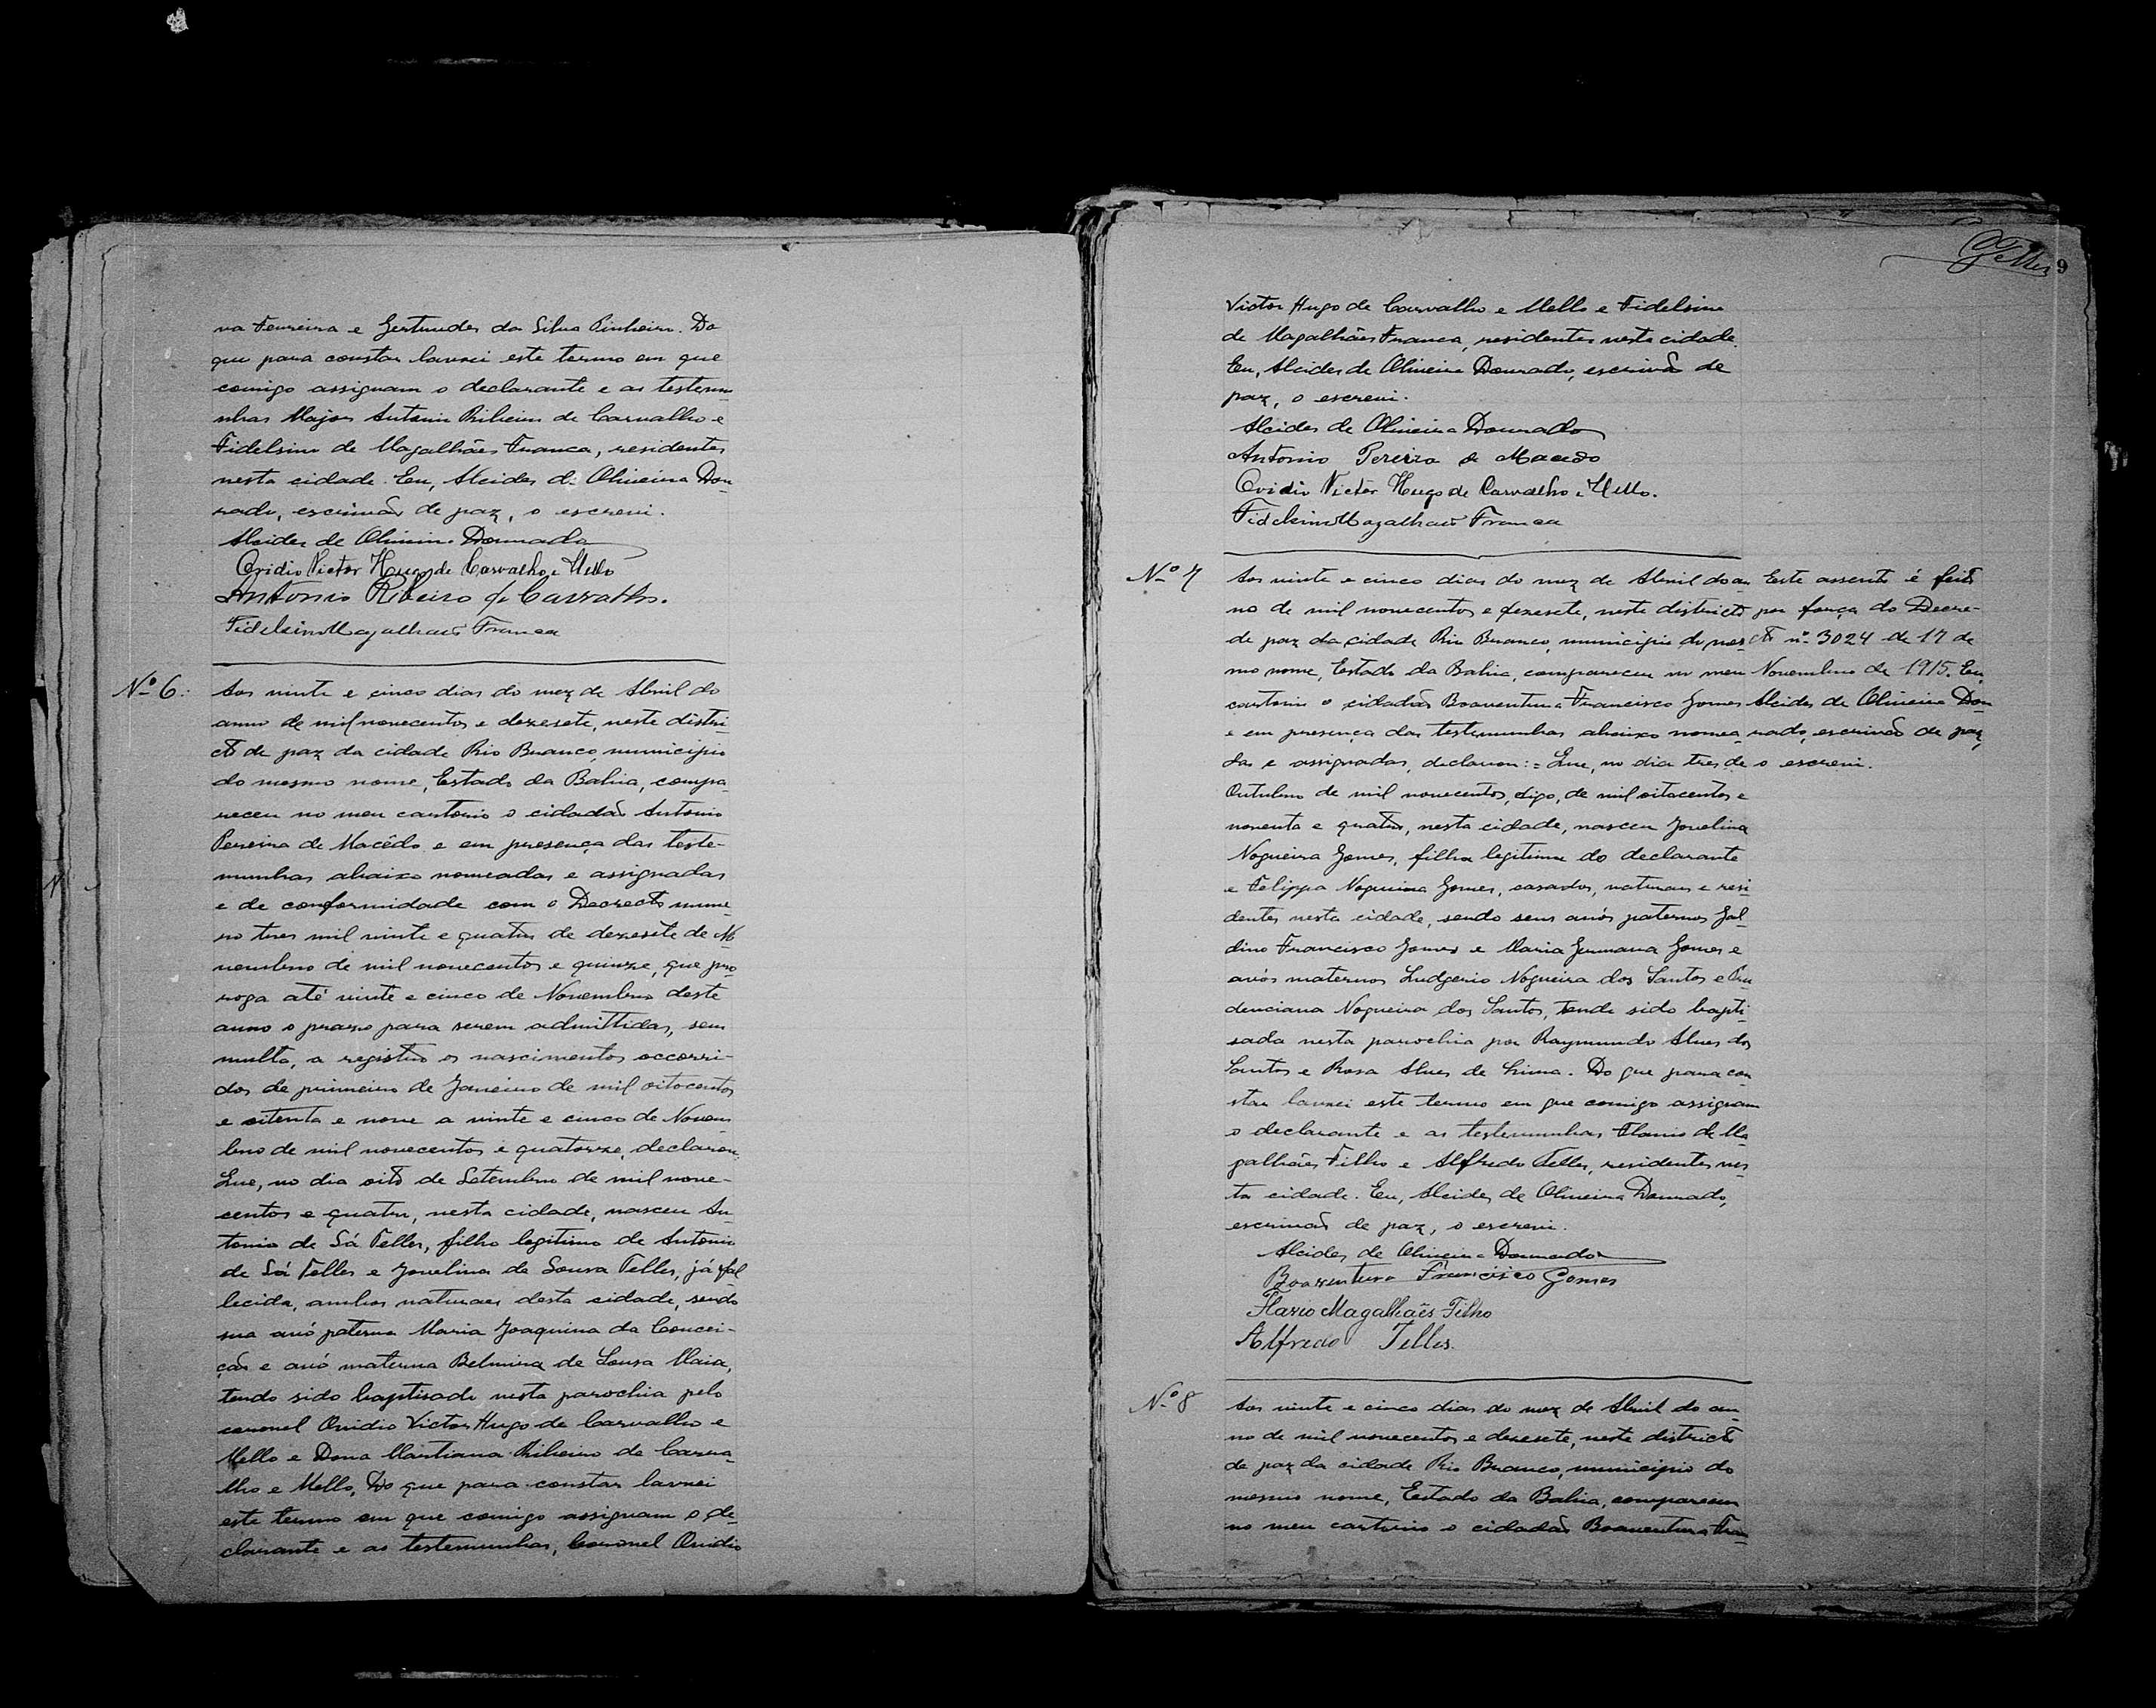 va Ferreira e Gertrudes da Silva Pinheiro. Do
que para constar lavrei este termo em que
comigo assignam o declarante e as testemu
nhas Major Antonio Ribeiro de Carvalho e
Fidelsino de Magalhães Franca, residentes
nesta cidade. Eu, Alcides de Oliveira Dou-
rado, escrivão de paz, o escrevi.
Alcides de Oliveira Dourado
Ovidio Victor Hugo de Carvalho e Mello
Antonio Ribeiro de Carvalho.
Fidelsino Magalhães Franca
Nº 6: Aos vinte e cinco dias do mez de Abril do
anno de mil novecentos e dezesete, neste distri-
cto de paz da cidade Rio Branco, municipio
do mesmo nome, Estado da Bahia, compa-
receu no meu cartorio o cidadão Antonio
Pereira de Macêdo e em presença das teste-
munhas abaixo nomeadas e assignadas
e de conformidade com o Decrecto nume-
ro tres mil vinte e quatro de dezesete de No
vembro de mil novecentos e quinze, que pro
roga até vinte e cinco de Novembro deste
anno o prazo para serem admittidas, sem
multa, a registro os nascimentos occorri-
dos de primeiro de Janeiro de mil oitocentos
e oitenta e nove a vinte e cinco de Novem
bro de mil novecentos e quatorze, declarou:
Que, no dia oito de Setembro de mil nove-
centos e quatro, nesta cidade, nasceu An-
tonio de Sá Telles, filho legitimo de Antonio
de Sá Telles e Jovelina de Sousa Telles, já fal
lecida, ambos naturaes desta cidade, sendo
sua avó paterna Maria Joaquina da Concei-
ção e avó materna Belmira de Sousa Maia,
tendo sido baptisado nesta parochia pelo
coronel Ovidio Victor Hugo de Carvalho e
Mello e Dona Martiana Ribeiro de Carva-
lho e Mello. Do que para constar lavrei
este termo em que comigo assignam o de-
clarante e as testemunhas, Coronel Ovidio
Telles 9
Victor Hugo de Carvalho e Mello e Fidelsino
de Magalhães Franca, residentes nesta cidade.
Eu, Alcides de Oliveira Dourado, escrivão de
paz, o escrevi.
Alcides de Oliveira Dourado
Antonio Pereira de Macedo
Ovidio Victor Hugo de Carvalho e Mello.
Fidelsino Magalhães Franca
Nº 7 Aos vinte e cinco dias do mez de Abril do an
no de mil novecentos e dezesete, neste districto
de paz da cidade Rio Branco, municipio do mes
mo nome, Estado da Bahia, compareceu no meu
cartorio o cidadão Boaventura Francisco Gomes
e em presença das testemunhas abaixo nomea
das e assignadas, declarou: = Que, no dia tres de
Outubro de mil novecentos, digo, de mil oitocentos e
noventa e quatro, nesta cidade, nasceu Jovelina
Nogueira Gomes, filha legitima do declarante
e Felippa Nogueira Gomes, casados, naturaes e resi
dentes nesta cidade, sendo seus avós paternos Gal
dino Francisco Gomes e Maria Germana Gomes e
avós maternos Ludgerio Nogueira dos Santos e Pru
denciana Nogueira dos Santos, tendo sido bapti-
sada nesta parochia por Raymundo Alves dos
Santos e Rosa Alves de Lima. Do que para con
star lavrei este termo em que comigo assignam
o declarante e as testemunhas Flavio de Ma
galhães Filho e Alfredo Telles, residentes nes
ta cidade. Eu, Alcides de Oliveira Dourado,
escrivão de paz, o escrevi.
Alcides de Oliveira Dourado
Boaventura Francisco Gomes
Flavio Magalhães Filho
Alfredo Telles.
Este assento é feito
por força do Decre-
cto nº 3024 de 17 de
Novembro de 1915. Eu,
Alcides de Oliveira Dou
rado, escrivão de paz,
o escrevi.
Nº 8 Aos vinte e cinco dias do mez de Abril do an-
no de mil novecentos e dezesete, neste districto
de paz da cidade Rio Branco, municipio do
mesmo nome, Estado da Bahia, compareceu
no meu cartorio o cidadão Boaventura Fran-